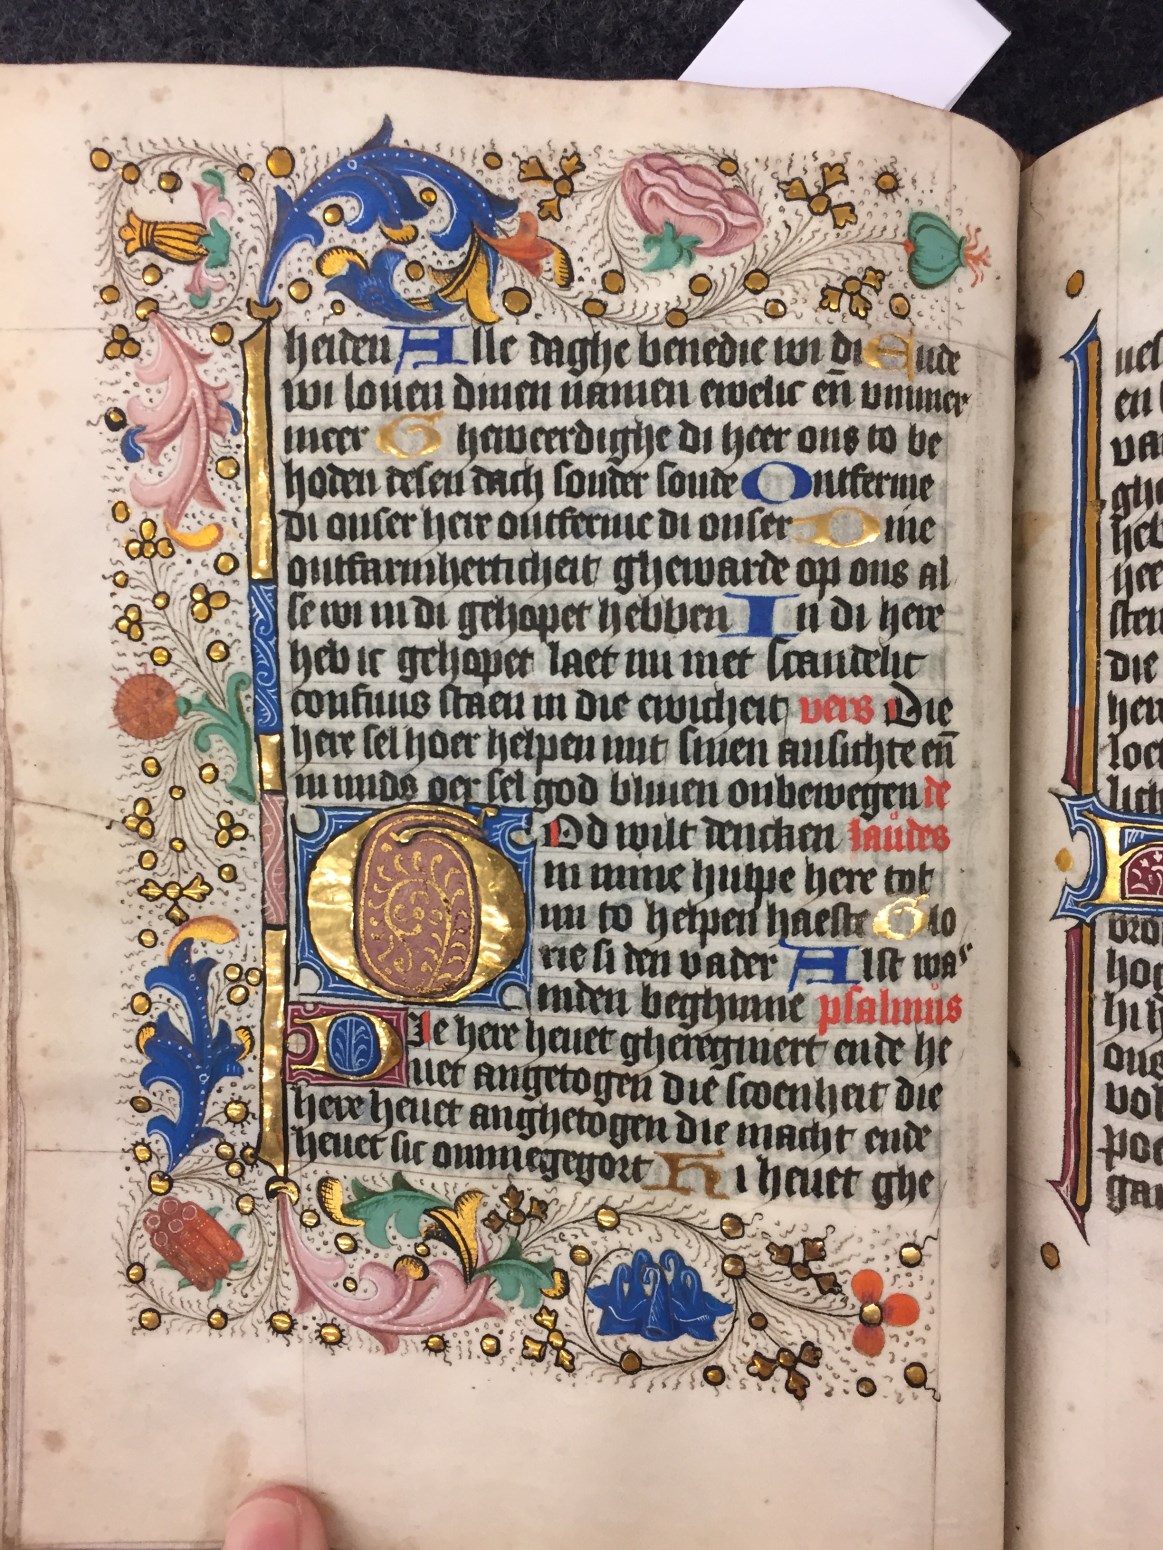 heiden Alle daghe benedie wi di Ende
wi louen dinen namen ewelic en̄ vmmer
meer Gheweerdighe di heer ons to be
hoden desen dach sonder sonde Ontferme
di onser here ontferme di onser Dine
ontfarmherticheit ghewarde op ons al
se wi in di gehopet hebben In di here
heb ic gehopet laet mi niet scandelic
confuus staen in die ewicheit vers Die
here sel hoer helpen mit sinen ansichte en̄
in mids oer sel god bliuen onbewegen de
God wilt dencken laudes
in mine hulpe here tot
mi to helpen haeste Glo
rie si den vader Alst was
inden beghinne psalmus
Die here heuet gheregniert ende he
uet angetogen die scoenheit die
here heuet anghetogen die macht ende
heuet sic ommegegort Hi heuet ghe
ues
en
va
ghe
heb
hee
sten
die
hen
loe
lich
oro
hoe
hi h
ous
vol
poe
gan